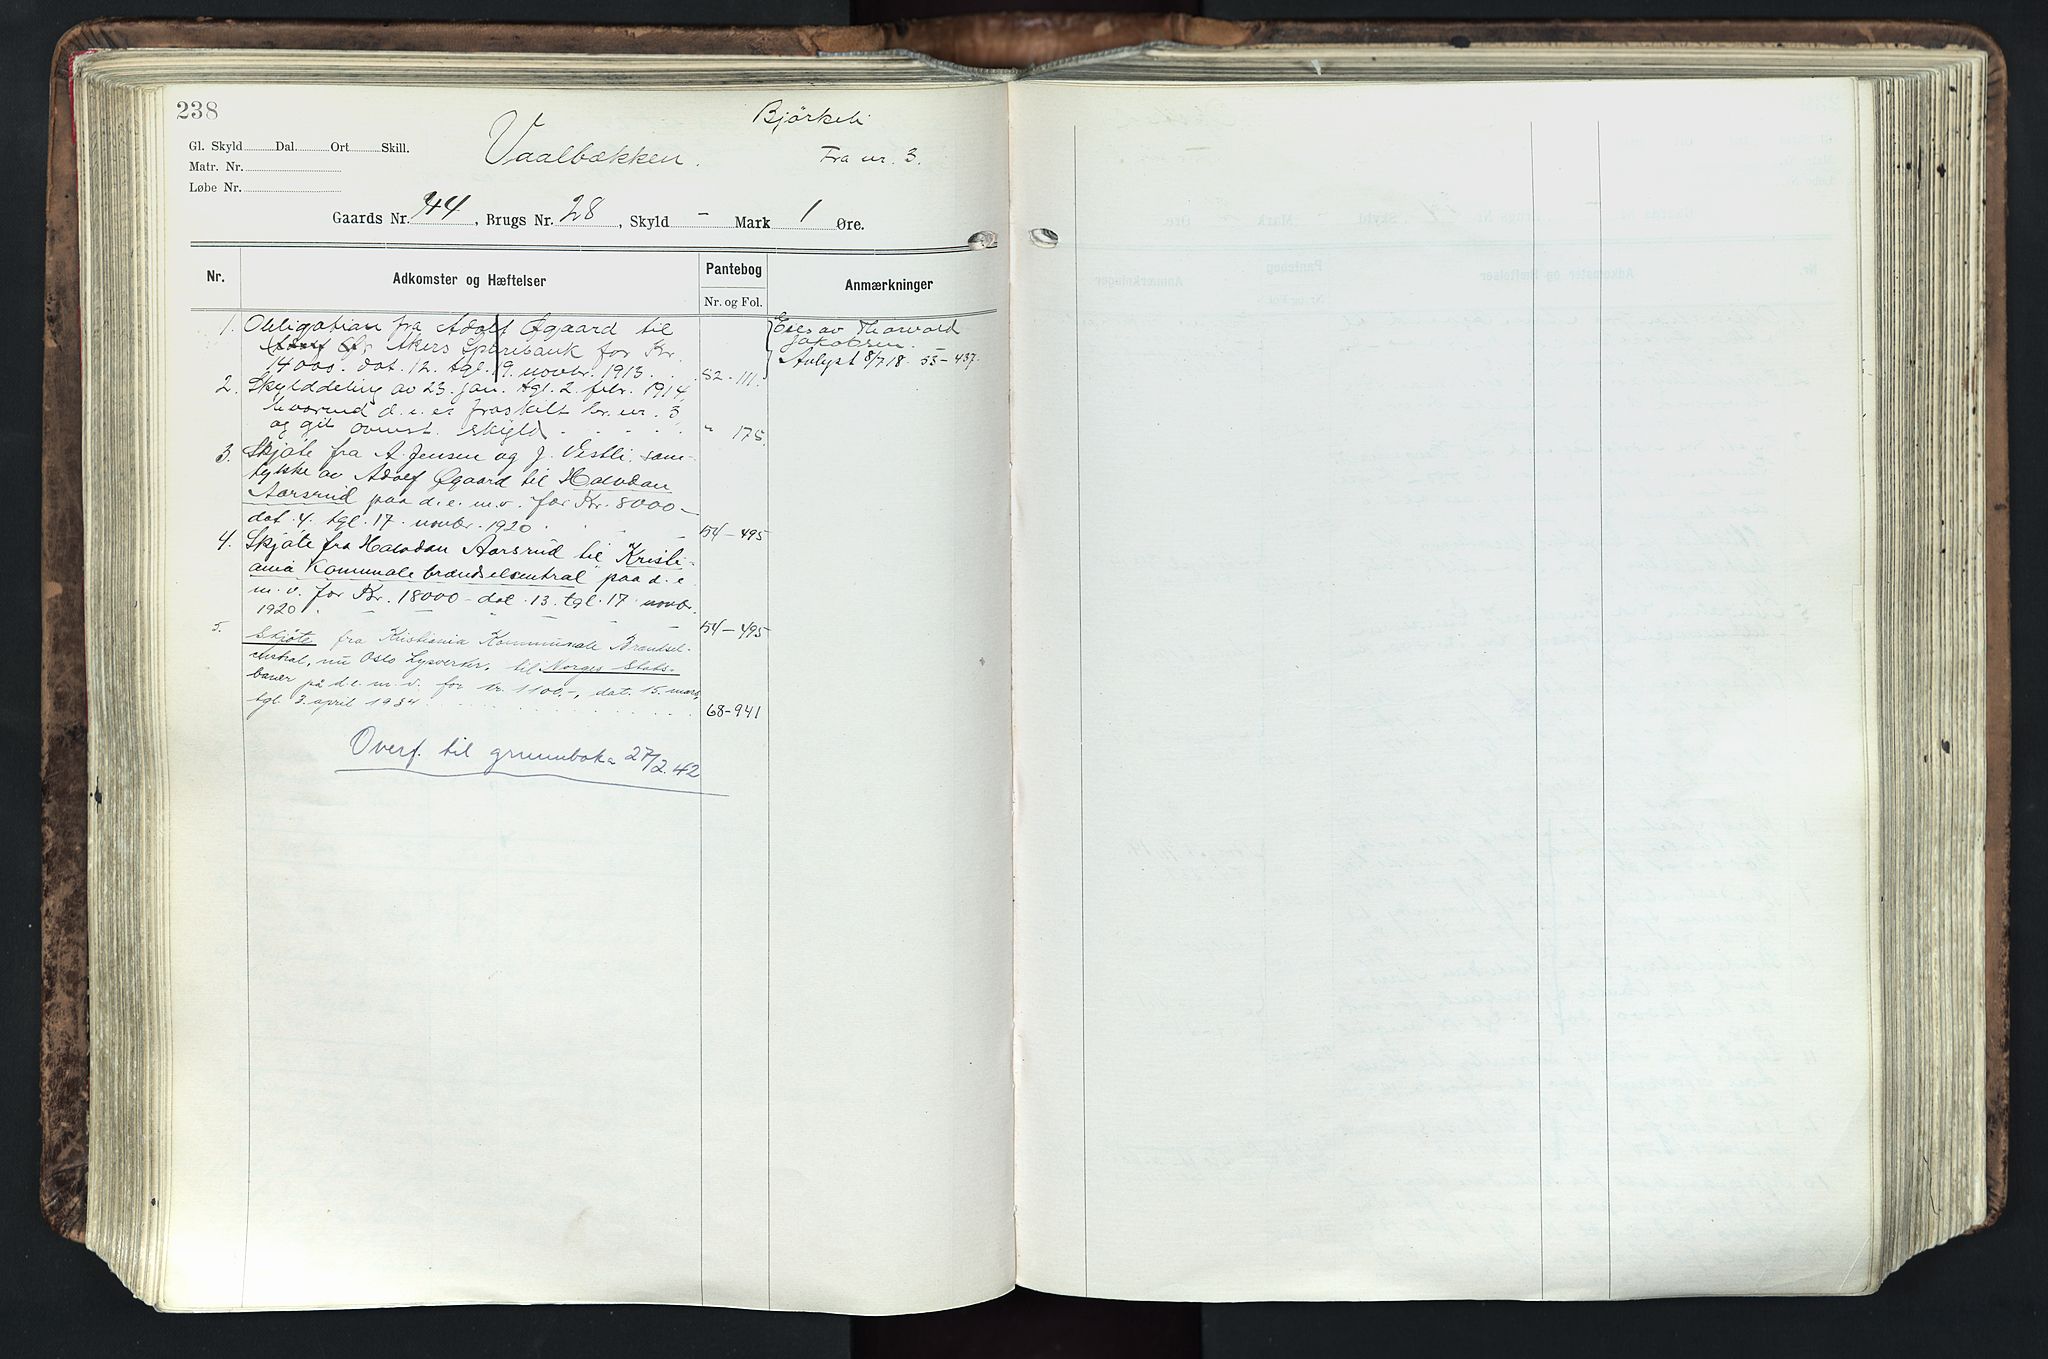 238
Bjørkeli
Gl. Skyld Dal. Ort Skill.
Vaalbækken.
Fra nr. 3.
Matr. Nr.
Løbe Nr.
Gaards Nr. 44, Brugs Nr. 28, Skyld - Mark 1 Øre.
Nr. Adkomster og Hæftelser Pantebog Anmærkninger
Nr. og Fol.
1. Obligation fra Adolf Øgaard til
Akers Sparebank for Kr.
14000. dat. 12. tgl. 19. novbr. 1913. 52-111.
Eies av Thorvald
Jakobsen.
Avlyst 8/7 18. 53-437.
2. Skylddeling av 23. jan. tgl. 2. febr. 1914,
hvorved d. e. er fraskilt br. nr. 3
og git ovenst. skyld " 175.
3. Skjøte fra A. Jensen og J. Vestli sam-
tykke av Adolf Øgaard til Halvdan
Aarsrud paa d. e. m. v. for Kr. 8000-
dat. 4. tgl. 17. novbr. 1920 54-495
4. Skjøte fra Halvdan Aarsrud til Kristi-
ania Kommunale brændselcentral paa d. e.
m. v. for Kr. 18000- dat. 13. tgl. 17. novbr.
1920. 54-495
5. Skjøte fra Kristiania Kommunale Brændsel-
central, nu Oslo Lysverker, til Norges Stats-
baner på d. e. m. v. for kr. 1100.-, dat. 15. mars,
tgl. 3. april 1934 68-941
Overf. til grunnboka 27/2.42